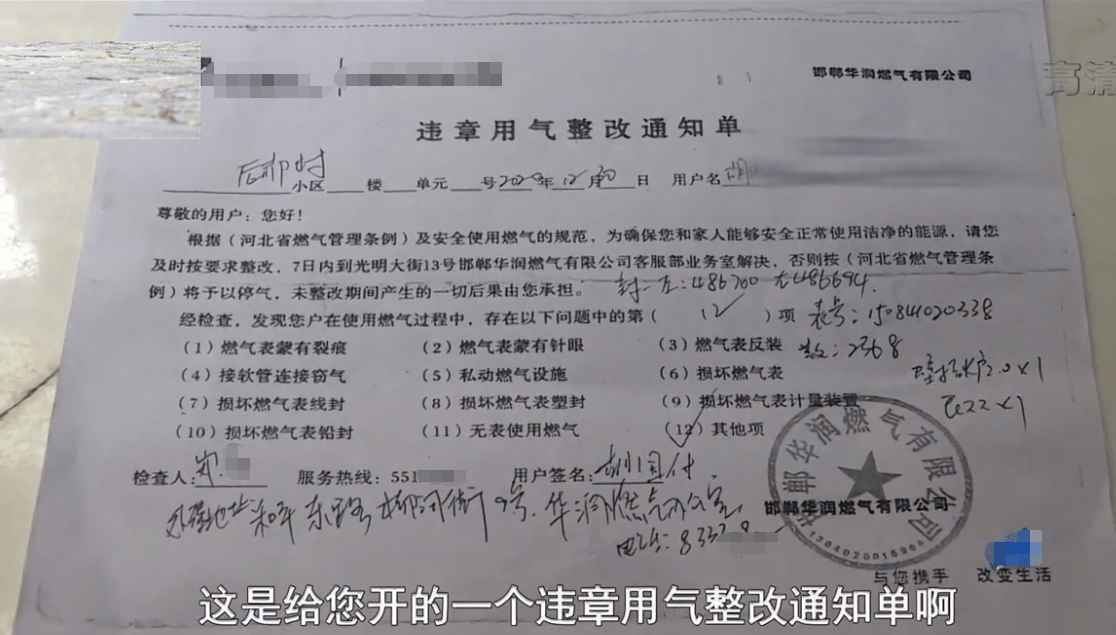 高清
邯郸华润燃气有限公司
违章用气整改通知单
后郝村小区 楼 单元 号2020年12月30日 用户名胡
尊敬的用户：您好！
根据（河北省燃气管理条例）及安全使用燃气的规范，为确保您和家人能够安全正常使用洁净的能源，请您
及时按要求整改，7日内到光明大街13号邯郸华润燃气有限公司客服部业务室解决，否则按（河北省燃气管理条
例）将予以停气，未整改期间产生的一切后果由您承担。 封：左：486700 右486694.
经检查，发现您户在使用燃气过程中，存在以下问题中的第（ 12 ）项 表号：15084020338
（1）燃气表蒙有裂痕 （2）燃气表蒙有针眼 （3）燃气表反装 数：2368
（4）接软管连接窃气 （5）私动燃气设施 （6）损坏燃气表 壁挂炉 ×1
（7）损坏燃气表线封 （8）损坏燃气表塑封 （9）损坏燃气表计量装置 ×1
（10）损坏燃气表铅封 （11）无表使用燃气 （12）其他项
检查人：郑. 服务热线：551 用户签名：胡国付
处理地址 和平东路 9号.华润燃气办公室
邯郸华润燃气有限公司
电话：833
邯郸华润燃气有限公司
与您携手 改变生活
这是给您开的一个违章用气整改通知单啊